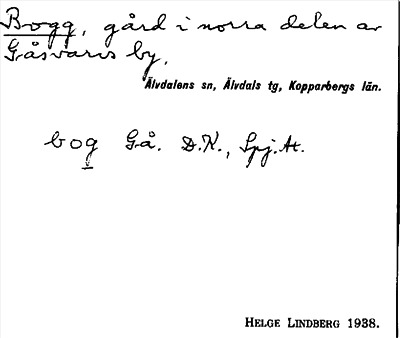 Bogg, gård i norra delen av
Gåsvarvs by.
Älvdalens sn, Älvdals tg, Kopparbergs län.
bog Gå. D.K., Spj.At.
HELGE LINDBERG 1938.